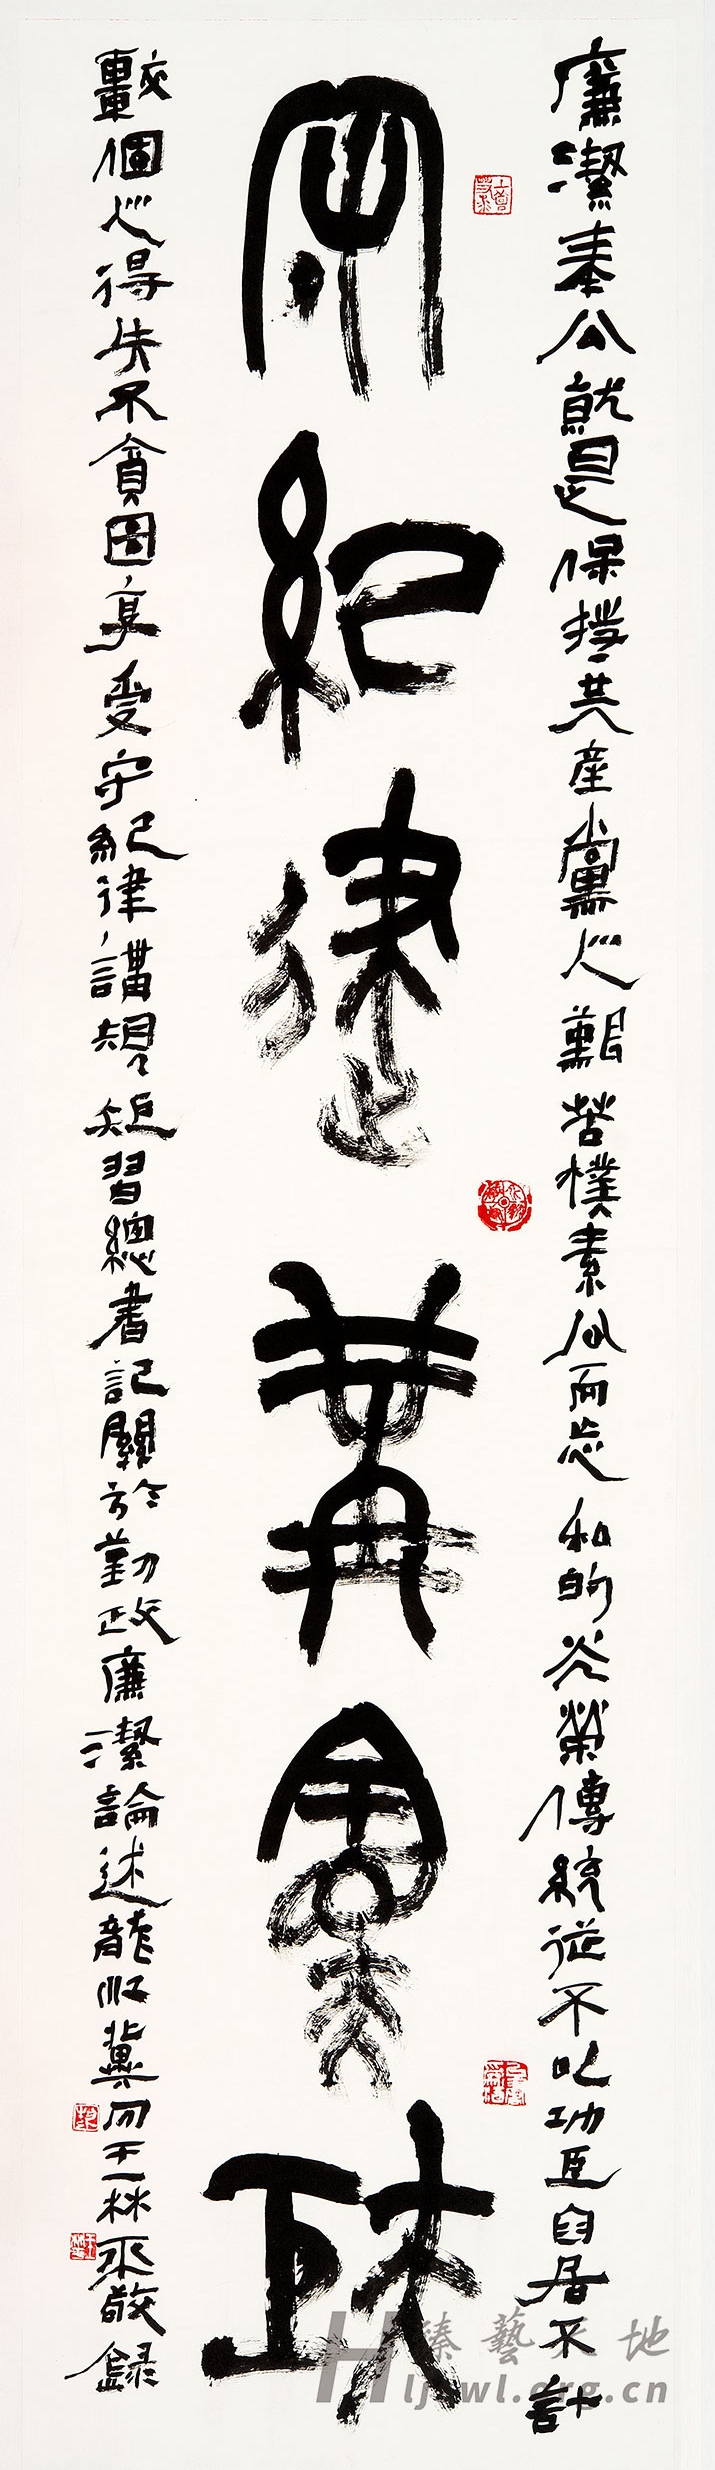 廉潔奉公就是保持共產黨人艱苦樸素公而忘私的光榮傳統從不以功臣自居不計
守紀律冓規矩
較個人得失不貪圖享受守紀律講規矩習總書記關於勤政廉潔論述龍江冀 王林 敬錄
臻藝天地